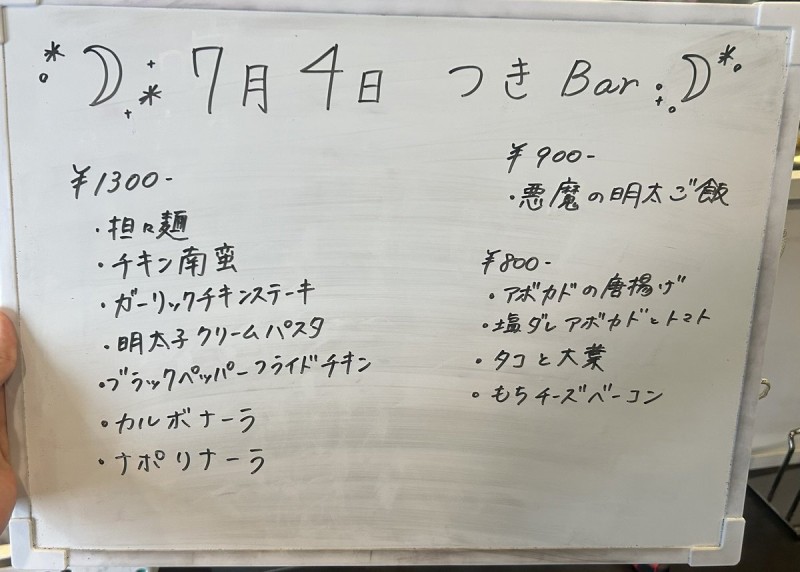 7月4日 つき Bar
¥1300-
・担々麺
・チキン南蛮
・ガーリックチキンステーキ
・明太子クリームパスタ
・ブラックペッパーフライドチキン
・カルボナーラ
・ナポリナーラ
¥900-
・悪魔の明太ご飯
¥800-
・アボカドの唐揚げ
・塩ダレアボカドとトマト
・タコと大葉
・もちチーズベーコン